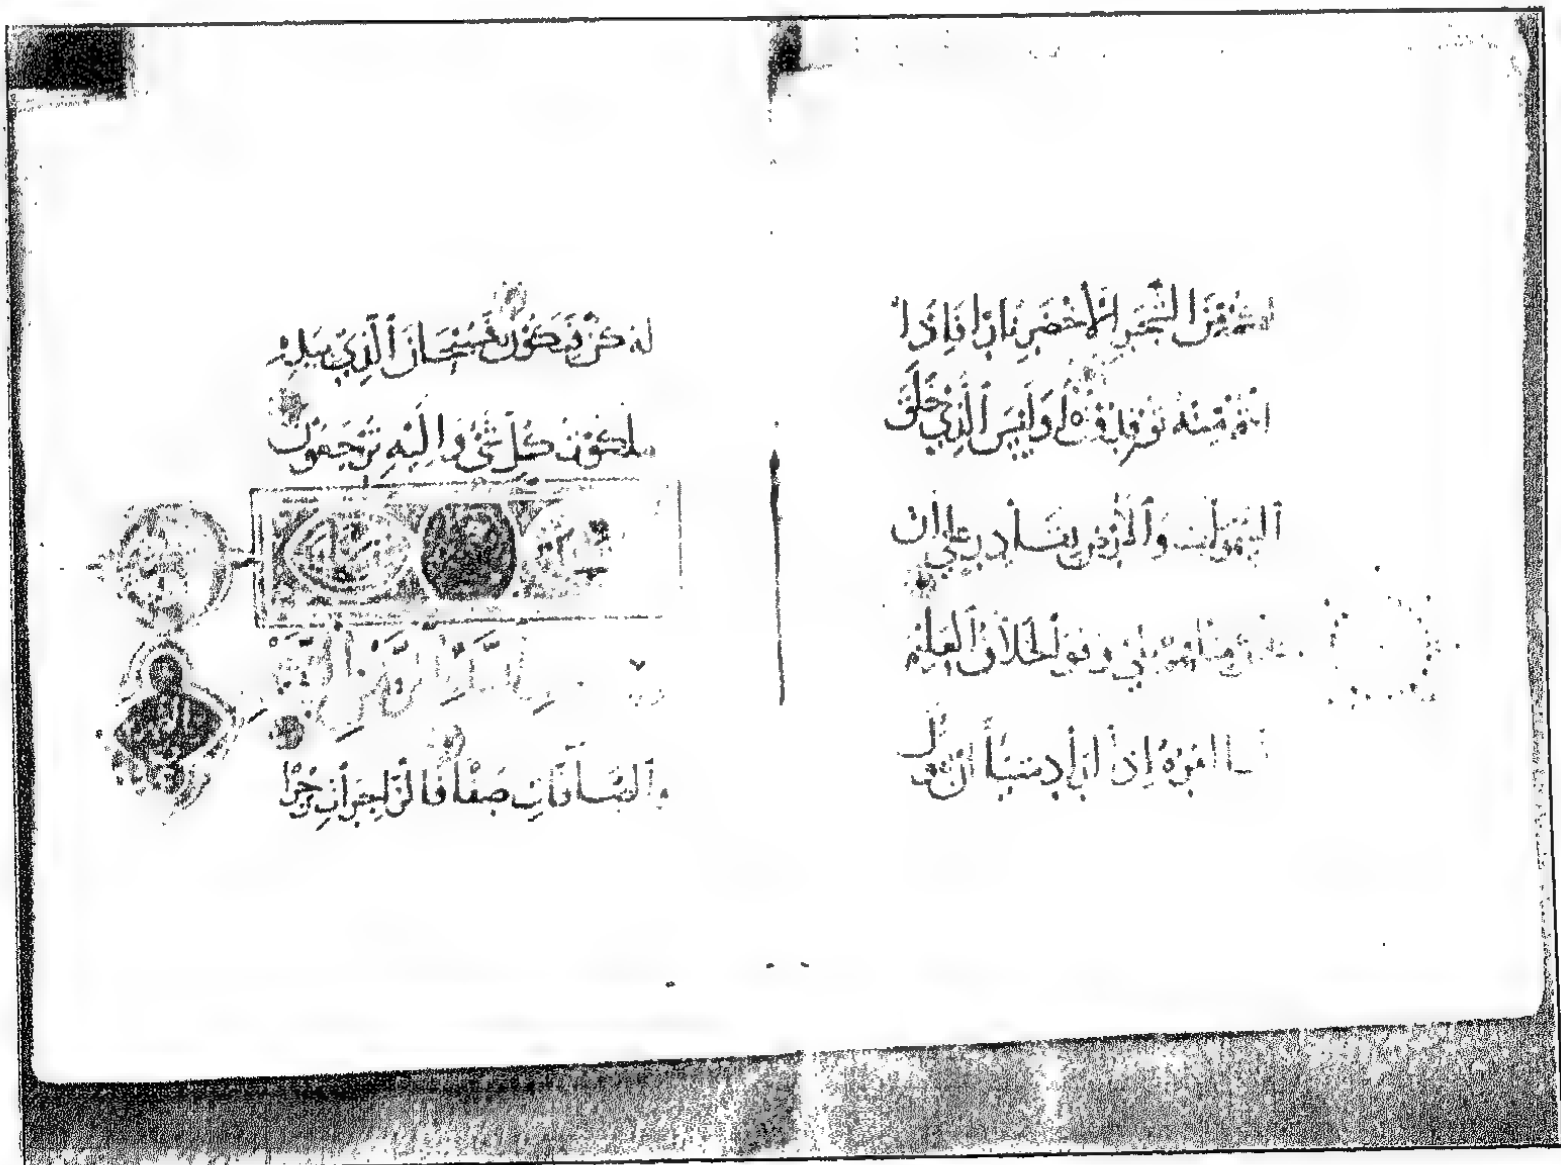 لَكُمْ مِنَ الشَّجَرِ الْأَخْضَرِ نَارًا فَإِذَا
أَنْتُمْ مِنْهُ تُوقِدُونَ أَوَلَيْسَ الَّذِي خَلَقَ
السَّمَوَاتِ وَالْأَرْضَ بِقَادِرٍ عَلَى أَنْ
يَخْلُقَ مِثْلَهُمْ بَلَى وَهُوَ الْخَلَّاقُ الْعَلِيمُ
إِنَّمَا أَمْرُهُ إِذَا أَرَادَ شَيْئًا أَنْ يَقُولَ
لَهُ كُنْ فَيَكُونُ فَسُبْحَانَ الَّذِي بِيَدِهِ
مَلَكُوتُ كُلِّ شَيْءٍ وَإِلَيْهِ تُرْجَعُونَ
بِسْمِ اللَّهِ الرَّحْمَنِ الرَّحِيمِ
وَالصَّافَّاتِ صَفًّا فَالزَّاجِرَاتِ زَجْرًا